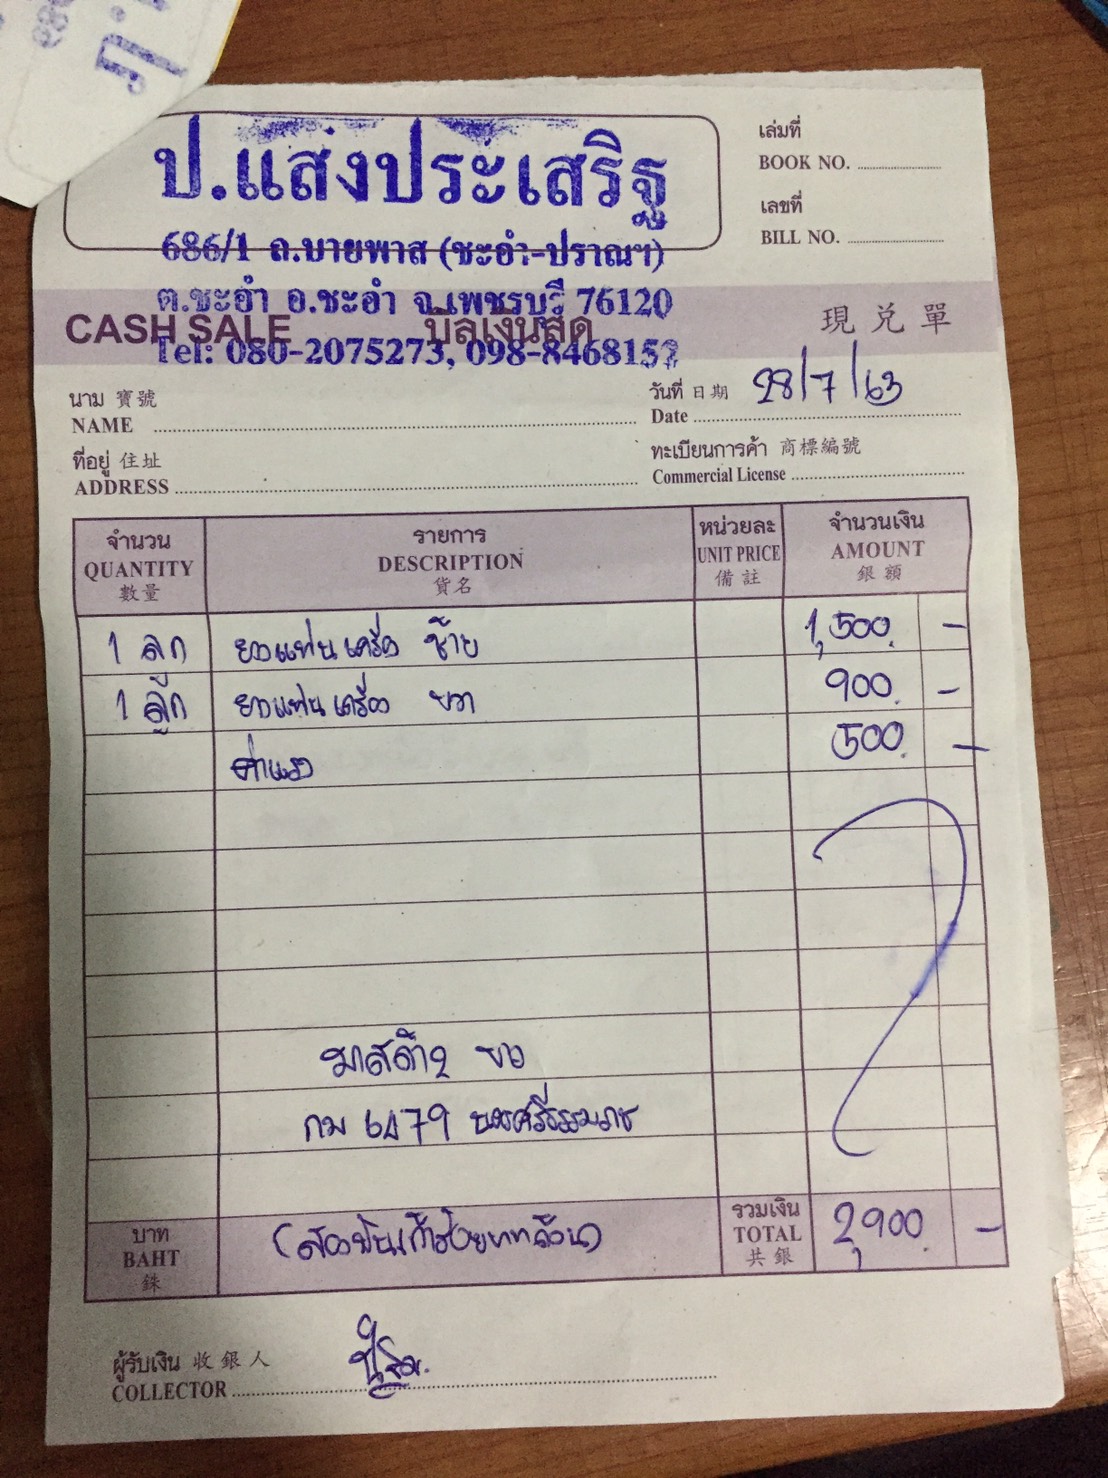 ป.แสงประเสริฐ
686/1 ถ.บายพาส (ชะอำ-ปราณฯ)
ต.ชะอำ อ.ชะอำ จ.เพชรบุรี 76120
Tel: 080-2075273, 098-8468152
เล่มที่
BOOK NO.
เลขที่
BILL NO.
CASH SALE บิลเงินสด 現兑單
นาม 寶號
NAME
วันที่ 日期 28/7/63
Date
ที่อยู่ 住址
ADDRESS
ทะเบียนการค้า 商標編號
Commercial License
จำนวน รายการ หน่วยละ จำนวนเงิน
QUANTITY DESCRIPTION UNIT PRICE AMOUNT
數量 貨名 備註 銀額
1 ลูก ยางแท่นเครื่อง ซ้าย 1,500 -
1 ลูก ยางแท่นเครื่อง ขวา 900 -
ค่าแรง 500 -
มาสด้า2 ขาว
กม 6479 นครศรีธรรมราช
บาท (สองพันเก้าร้อยบาทถ้วน) รวมเงิน 2,900 -
BAHT TOTAL
銖 共銀
ผู้รับเงิน 收銀人
COLLECTOR